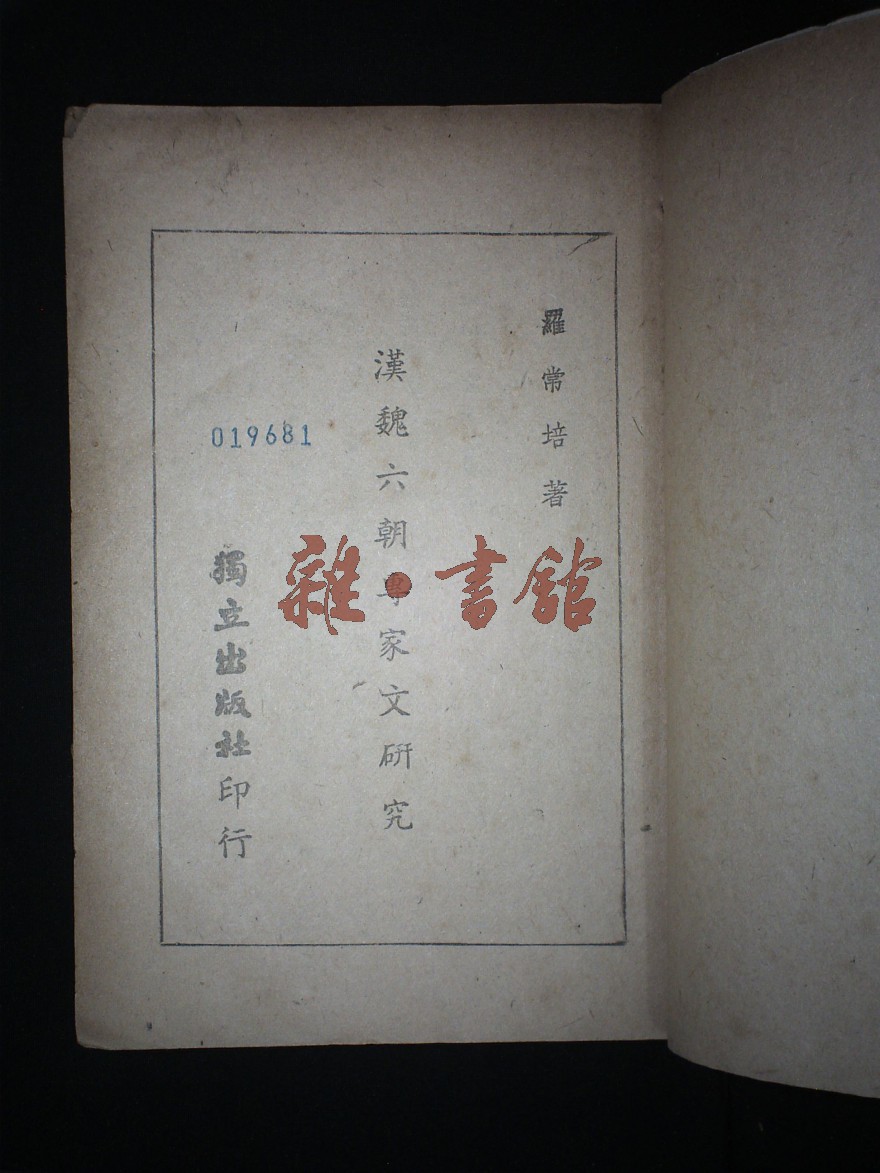 羅常培著
漢魏六朝專家文研究
019681
獨立出版社印行
雜·書館